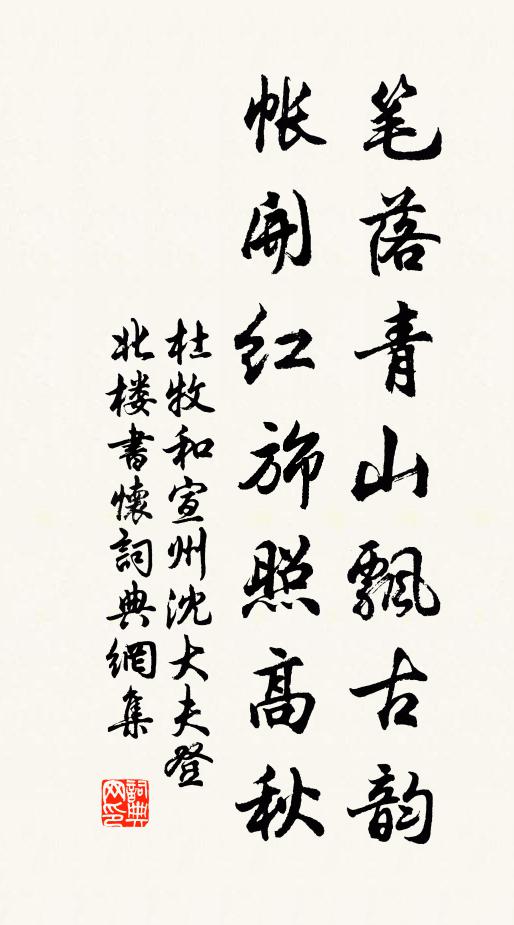 笔落青山飘古韵
帐開红旆照高秋
杜牧和宣州沈大夫登
北楼書懷詞典網集
詞典网印